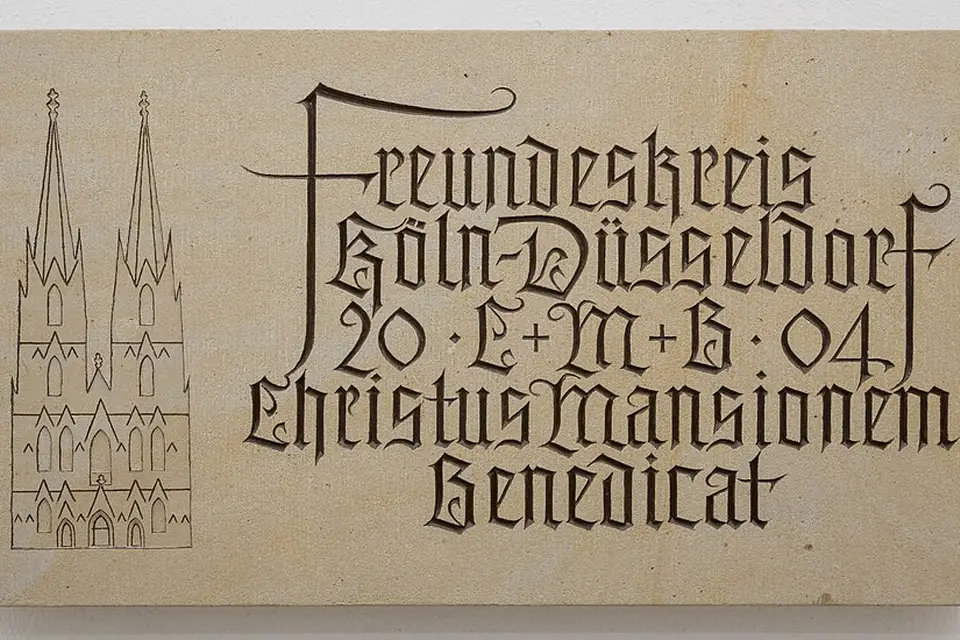 Freundeskreis
Köln-Düsseldorf
20 · C + M + B · 04
Christus Mansionem
Benedicat